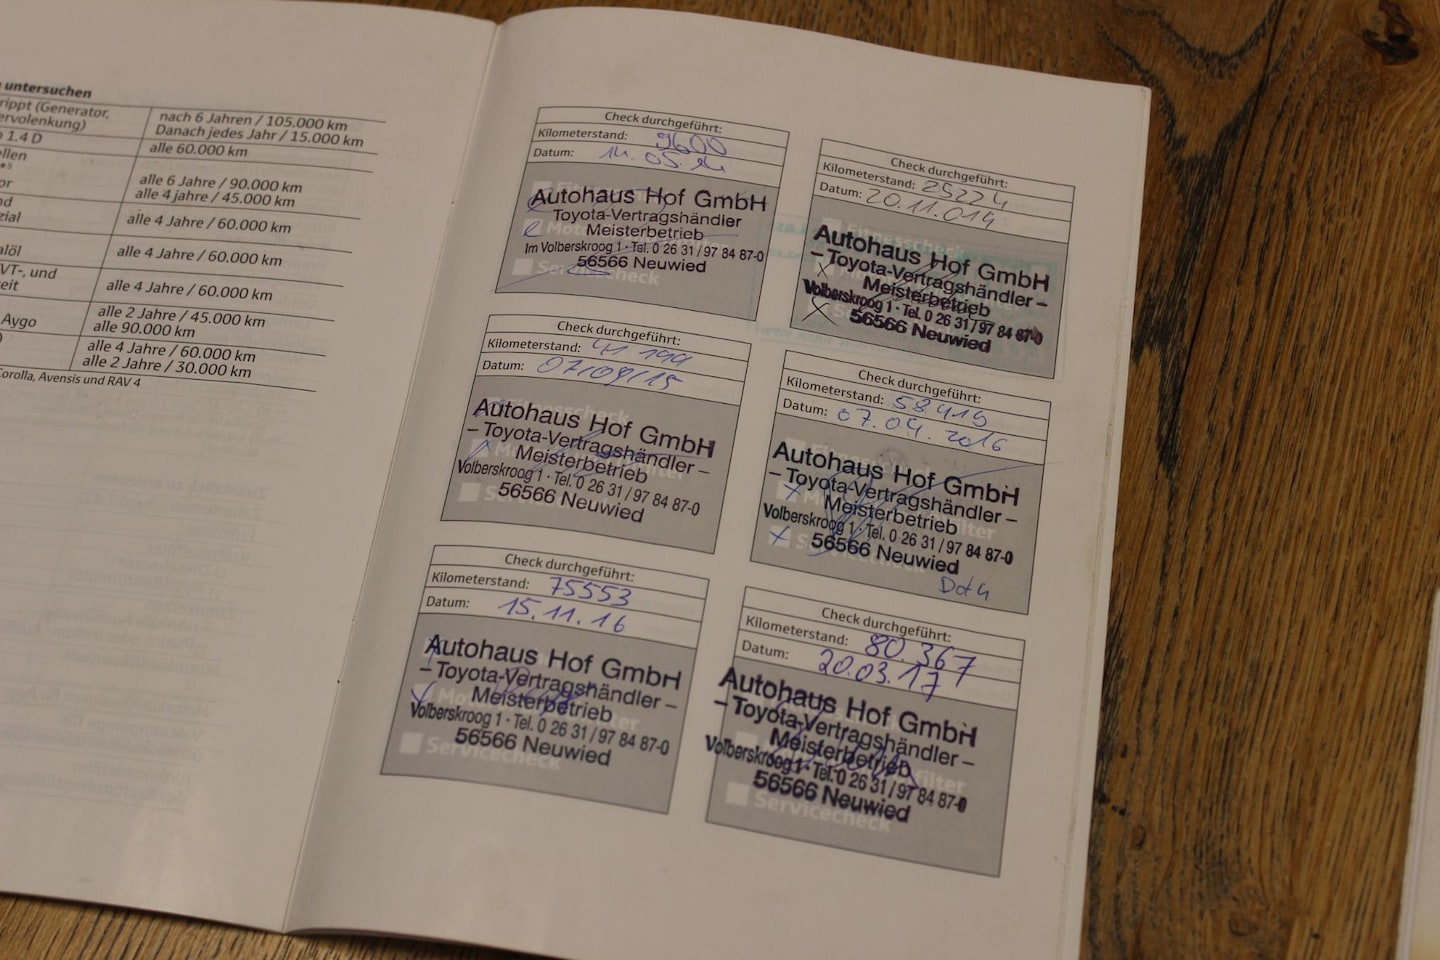 untersuchen
rippt (Generator,
ervolenkung)
nach 6 Jahren / 105.000 km
Danach jedes Jahr / 15.000 km
1.4 D
alle 60.000 km
ellen
alle 6 Jahre / 90.000 km
or
alle 4 jahre / 45.000 km
nd
zial
alle 4 Jahre / 60.000 km
alöl
alle 4 Jahre / 60.000 km
VT-, und
eit
alle 4 Jahre / 60.000 km
Aygo
alle 2 Jahre / 45.000 km
alle 90.000 km
alle 4 Jahre / 60.000 km
alle 2 Jahre / 30.000 km
Corolla, Avensis und RAV 4
Check durchgeführt:
Kilometerstand: 9600
Datum: 14.05.14
Autohaus Hof GmbH
Toyota-Vertragshändler
Meisterbetrieb
Im Volberskroog 1 · Tel. 0 26 31 / 97 84 87-0
56566 Neuwied
Servicecheck
Check durchgeführt:
Kilometerstand: 25224
Datum: 20.11.014
Fitnesscheck
Autohaus Hof GmbH
– Toyota-Vertragshändler –
Meisterbetrieb
Volberskroog 1 · Tel. 0 26 31 / 97 84 87-0
56566 Neuwied
Check durchgeführt:
Kilometerstand: 41 199
Datum: 07/09/15
Fitnesscheck
Autohaus Hof GmbH
– Toyota-Vertragshändler –
Meisterbetrieb
Volberskroog 1 · Tel. 0 26 31 / 97 84 87-0
56566 Neuwied
Check durchgeführt:
Kilometerstand: 58419
Datum: 07.04.2016
Autohaus Hof GmbH
– Toyota-Vertragshändler –
Meisterbetrieb
Volberskroog 1 · Tel. 0 26 31 / 97 84 87-0
56566 Neuwied
Servicecheck
Dot 4
Check durchgeführt:
Kilometerstand: 75553
Datum: 15.11.16
Autohaus Hof GmbH
– Toyota-Vertragshändler –
Meisterbetrieb
Volberskroog 1 · Tel. 0 26 31 / 97 84 87-0
56566 Neuwied
Servicecheck
Check durchgeführt:
Kilometerstand: 80.367
Datum: 20.03.17
Autohaus Hof GmbH
– Toyota-Vertragshändler –
Meisterbetrieb
Volberskroog 1 · Tel. 0 26 31 / 97 84 87-0
56566 Neuwied
Servicecheck